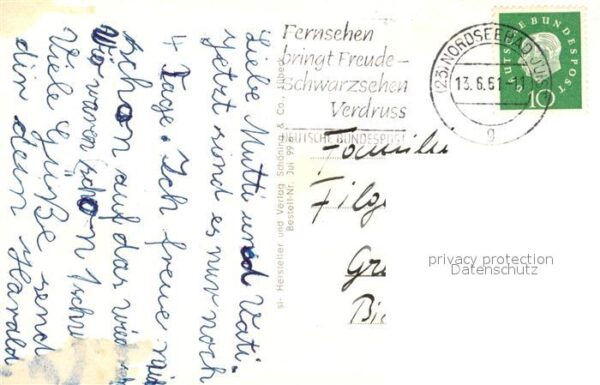 Liebe Mutti und Vati.
jetzt sind es nur noch
4 Tage. Ich freue mich
schon auf das wieder
Wir waren schon 1
Viele Grüße send
dir dein Harald
si- Hersteller und Verlag Schöning & Co., Lübeck
Bestell-Nr. Jui 99
Fernsehen
bringt Freude –
Schwarzsehen
Verdruss
DEUTSCHE BUNDESPOST
(23) NORDSEEBAD JUIST
13.6.61-11
g
DEUTSCHE BUNDESPOST
10
Familie
Filg
Gr
Bi
privacy protection
Datenschutz